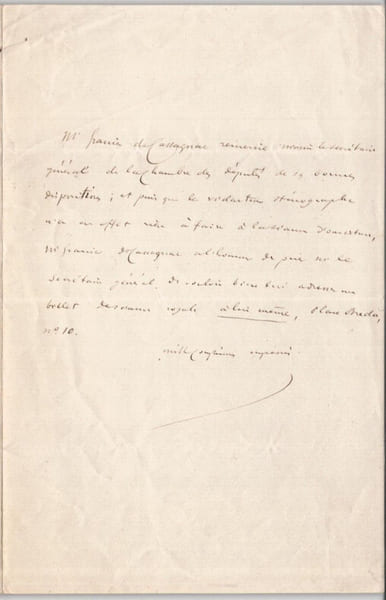 Mr Granier de Cassagnac remercie monsieur le secrétaire
général de la Chambre des députés de ses bonnes
dispositions ; et puis que le rédacteur sténographe
n'a en effet rien à faire à la séance d'ouverture,
Mr Granier de Cassagnac a l'honneur de prier Mr le
secrétaire général de vouloir bien lui adresser un
billet de séance royale à lui même, Place Breda,
n° 10.
mille compliments empressés